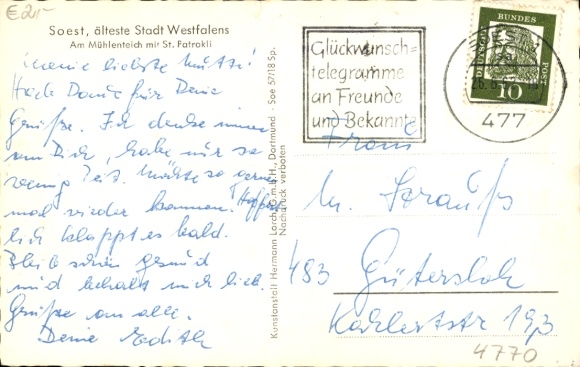 € 2,-
Soest, älteste Stadt Westfalens
Am Mühlenteich mit St. Patrokli
meine liebste Mutti!
Hab Dank für Deine
Grüße. Ich denke immer
an Dich, habe nur so
wenig Zeit. Möchte so gerne
mal wieder kommen. Hoffent-
lich klappt es bald.
Bleib schön gesund
und behalt mich lieb.
Grüße an alle.
Deine Edith
Kunstanstalt Hermann Lorch G.m.b.H., Dortmund · Soe 57/18 Sp.
Nachdruck verboten
Glückwunsch-
telegramme
an Freunde
und Bekannte
SOEST
477
DEUTSCHE
BUNDES
POST
10
Frau
Strauß
483 Gütersloh
Kahlertstr 193
4770